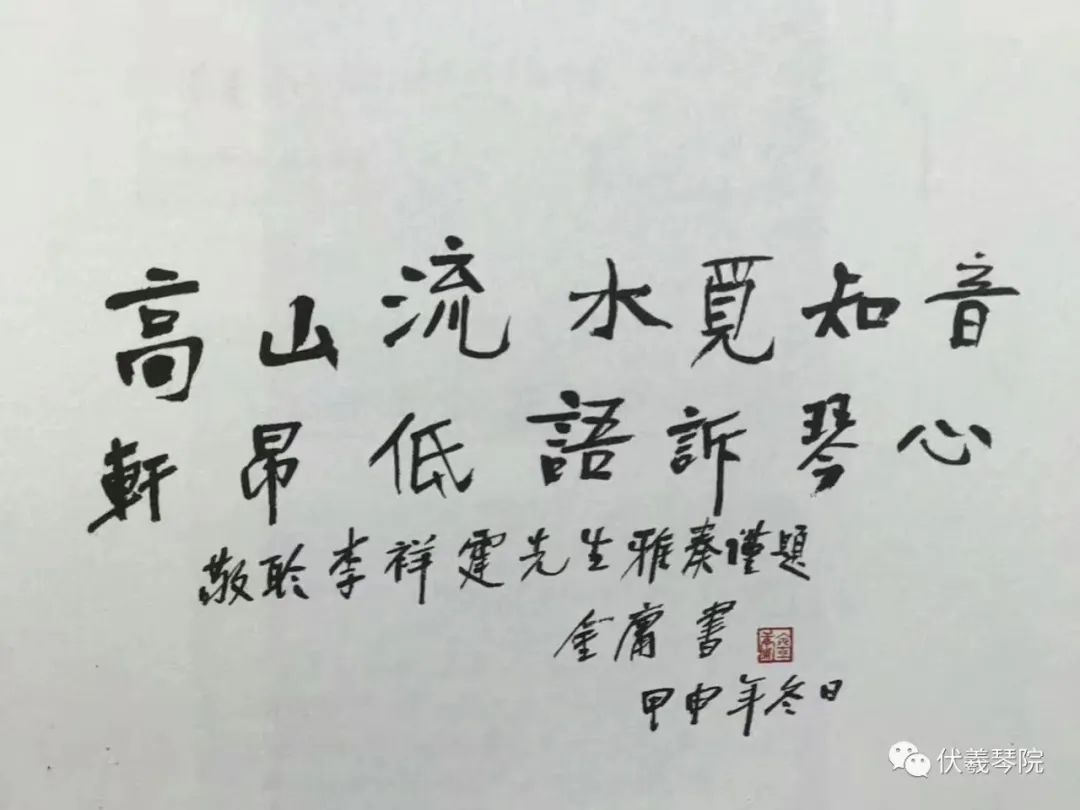 高山流水覓知音
軒昂低語訴琴心
敬聆李祥霆先生雅奏謹題
金庸書
甲申年冬日
伏羲琴院